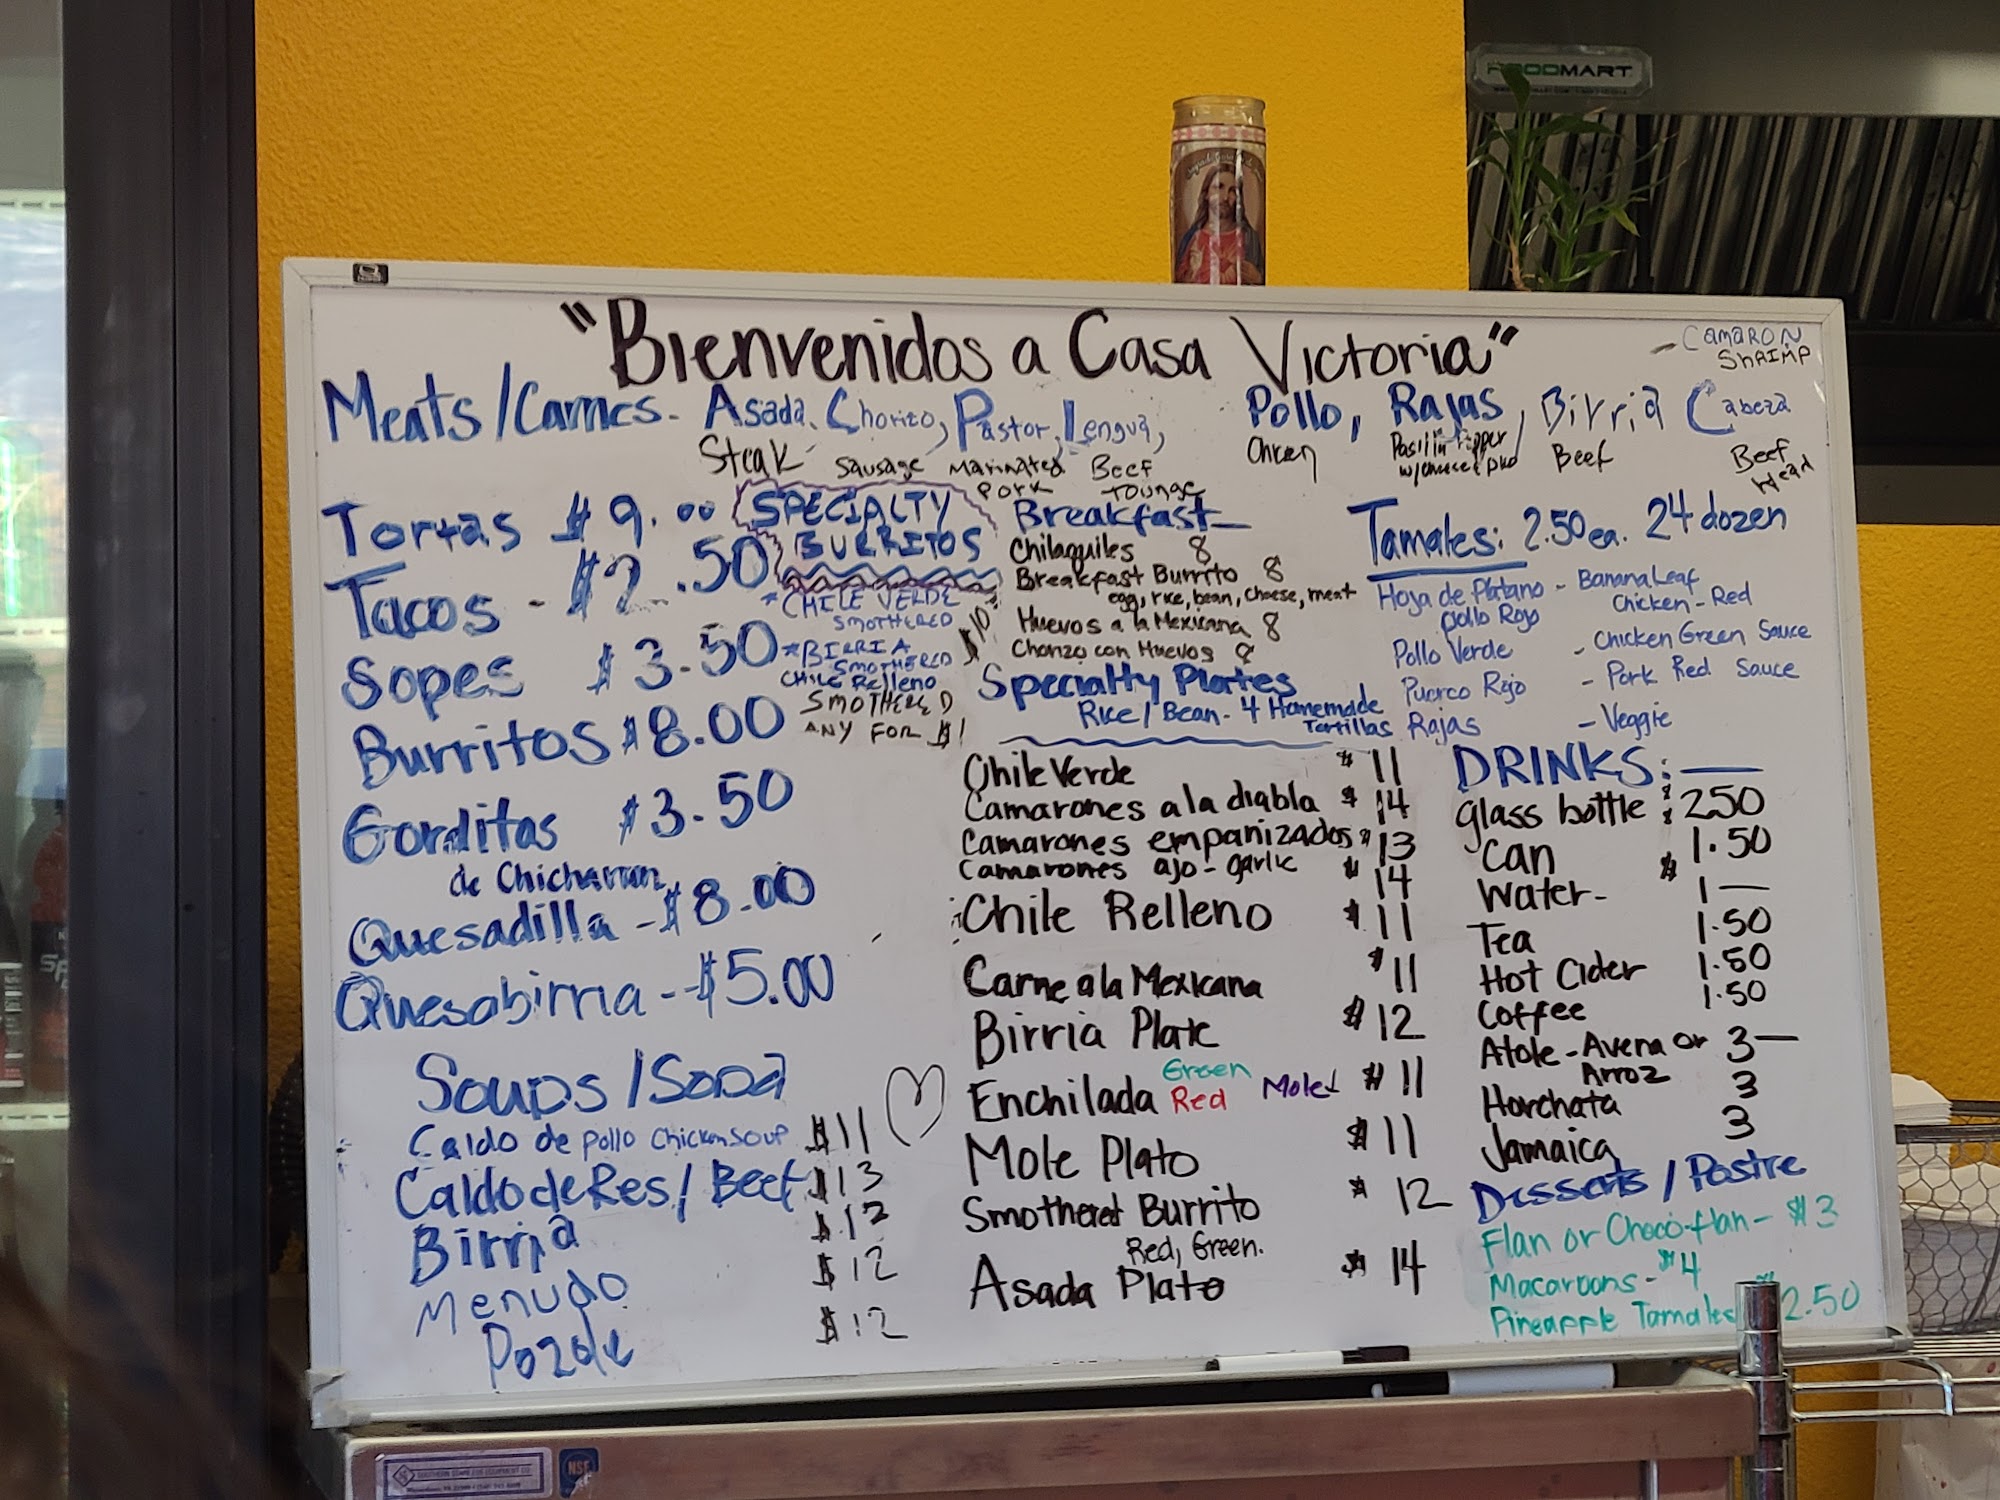 FOODMART
"Bienvenidos a Casa Victoria"
- CamaRON
ShRIMP
Meats/Carnes- Asada, Chorizo, Pastor, Lengua, Pollo, Rajas, Birria Cabeza
Steak Sausage Marinated Pork Beef Tounge Chicken Beef Beef Head
Tortas $9.00
Tacos - $2.50
Sopes $3.50
Burritos $8.00
Gorditas $3.50
de Chicharron
Quesadilla - $8.00
Quesabirria -- $5.00
SPECIALTY
BURRITOS
* CHILE VERDE
SMOTHERED
* BIRRIA
SMOTHERED
CHILE Relleno
SMOTHERED
ANY FOR $1
$10
Soups/Sopa
Caldo de pollo Chicken Soup $11
Caldo de Res/Beef $13
Birria $12
Menudo $12
Pozole $12
Breakfast
Chilaquiles 8
Breakfast Burrito 8
egg, rice, bean, cheese, meat
Huevos a la Mexicana 8
Chorizo con Huevos 8
Specialty Plates
Rice/Bean - 4 Homemade
Tortillas
Chile Verde $11
Camarones a la diabla $14
Camarones empanizados $13
Camarones ajo - garlic $14
Chile Relleno $11
Carne a la Mexicana $11
Birria Plate $12
Enchilada Green Red Mole $11
Mole Plato $11
Smothered Burrito $12
Red, Green.
Asada Plato $14
Tamales: 2.50 ea. 24 dozen
Hoja de Platano - Banana Leaf
pollo Rojo Chicken - Red
Pollo Verde - Chicken Green Sauce
Puerco Rojo - Pork Red Sauce
Rajas - Veggie
DRINKS:
Glass bottle : 250
Can 1.50
Water - $1
Tea 1.50
Hot Cider 1.50
Coffee 1.50
Atole - Avena or Arroz 3
Horchata 3
Jamaica 3
Desserts/Postre
Flan or Choco-flan - $3
Macaroons - $4
Pineapple Tamales 2.50
NSF